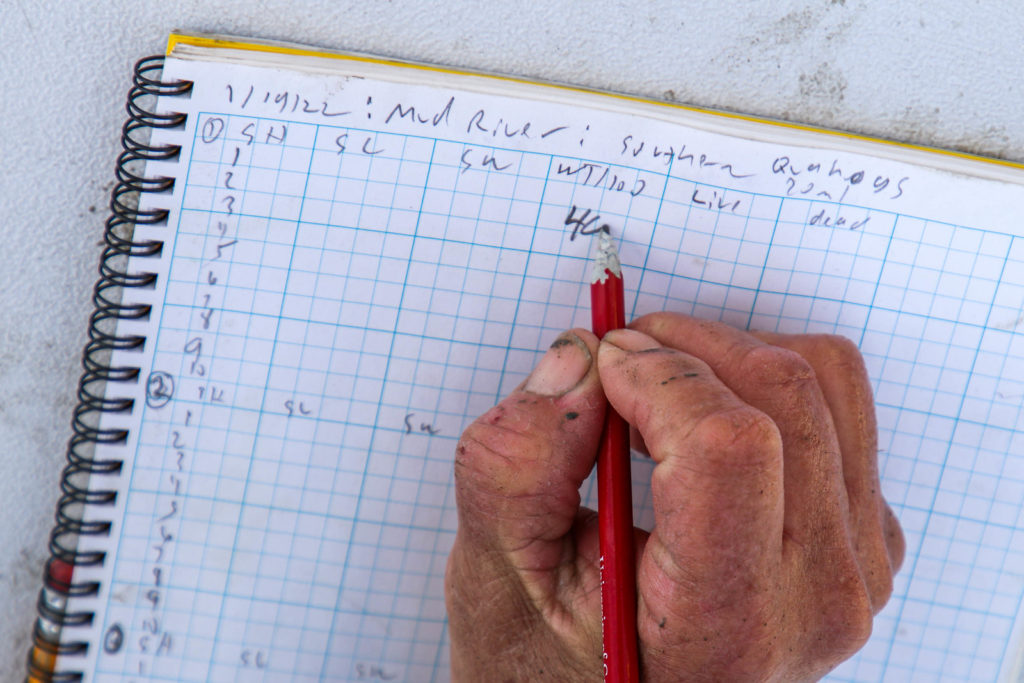 1/19/22 : Mud River : Southern Quahogs
① SH SL SW WT/100 Live 20ml dead
1
2
3 40
4
5
6
7
8
9
10
② SH SL SW
1
2
3
4
5
6
7
8
9
10
③ SH SL SW
1